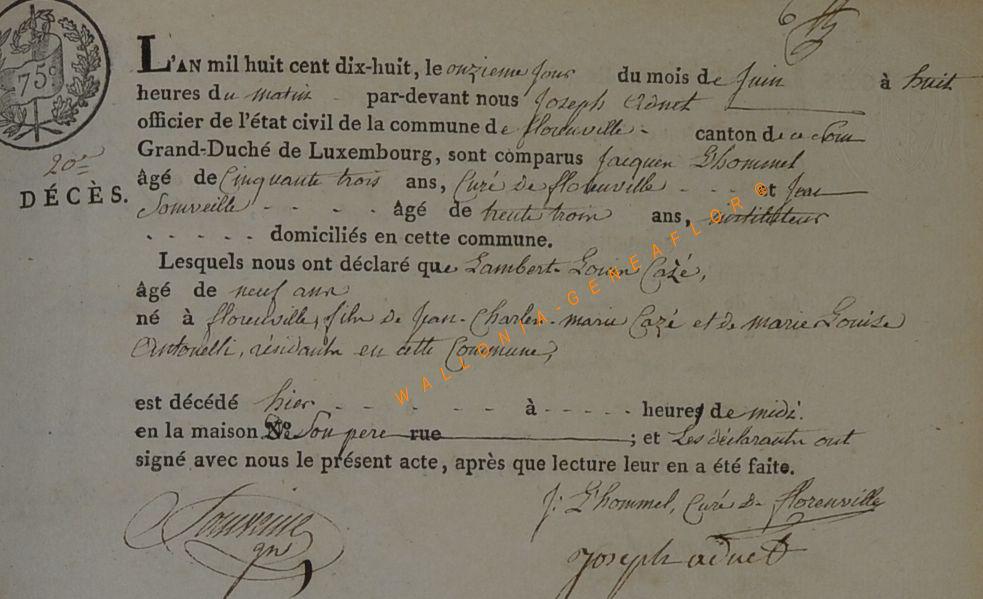 75c
L'AN mil huit cent dix-huit, le onzieme jour du mois de juin à huit
heures du matin - par-devant nous Joseph Adnet
officier de l'état civil de la commune de florenville - canton de ce nom
Grand-Duché de Luxembourg, sont comparus Jacques L'hommel
20e
DÉCÈS.
âgé de Cinquante trois ans, Curé de florenville - - - et Jean
- - - - âgé de trente trois ans, instituteur
- - - - - domiciliés en cette commune.
Lesquels nous ont déclaré que Lambert-Louis Cazé,
âgé de neuf ans
né à florenville, fils de Jean-Charles-marie Cazé et de marie Louise
Antonelli, résidants en cette Commune,
est décédé hier - - - - - à - - - - - heures de midi.
en la maison No Son père rue ; et Les déclarants ont
signé avec nous le présent acte, après que lecture leur en a été faite.
J: L'hommel, Curé de florenville
Joseph adnet
WALLONIA-GENEAFLOR®